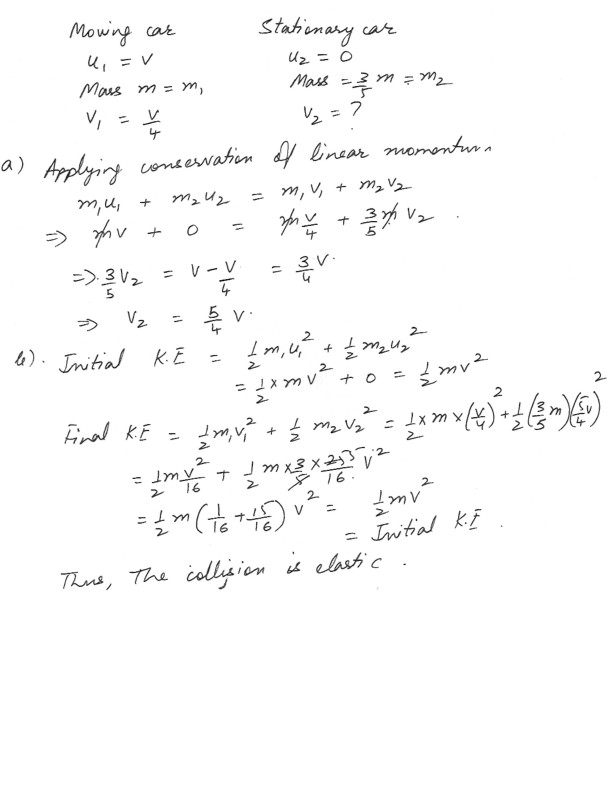 Moving car Stationary car
u₁ = v u₂ = 0
Mass m = m₁ Mass = 3/5 m = m₂
V₁ = v/4 V₂ = ?
a) Applying conservation of linear momentum
m₁u₁ + m₂u₂ = m₁v₁ + m₂v₂
⇒ mv + 0 = m v/4 + 3/5 m v₂
⇒ 3/5 v₂ = v - v/4 = 3/4 v.
⇒ v₂ = 5/4 v.
b). Initial K.E = 1/2 m₁u₁² + 1/2 m₂u₂²
= 1/2 × mv² + 0 = 1/2 mv²
Final K.E = 1/2 m₁v₁² + 1/2 m₂v₂² = 1/2 × m × (v/4)² + 1/2 (3/5 m)(5/4 v)²
= 1/2 m v²/16 + 1/2 m × 3/5 × 25 5/16 v²
= 1/2 m (1/16 + 15/16) v² = 1/2 mv²
= Initial K.E.
Thus, The collision is elastic.